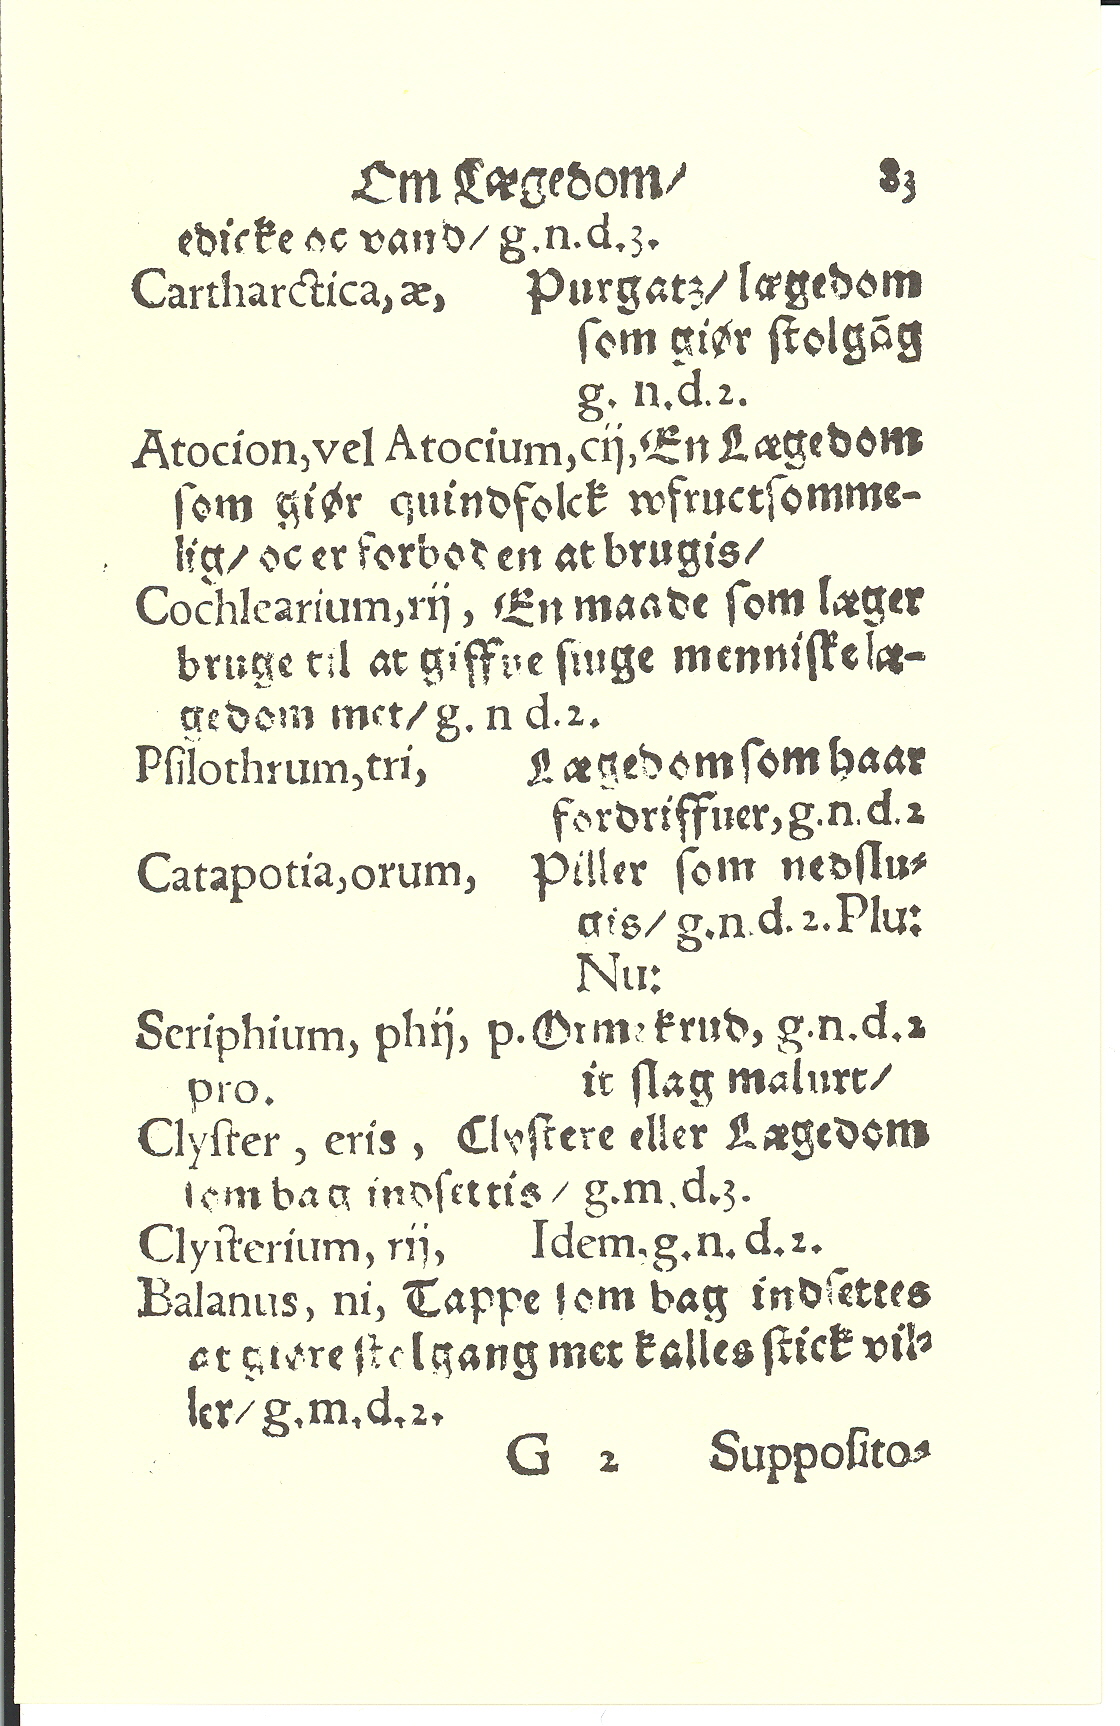 Om Lægedom/ 83
edicke oc vand/ g.n.d.3.
Cartharctica,æ, Purgatz/ lægedom
som giør stolgāg
g. n.d.2.
Atocion,vel Atocium,cij, En Lægedom
som giør quindfolck wfructsomme-
lig/ oc er forboden at brugis/
Cochlearium,rij, En maade som læger
bruge til at giffue siuge menniske læ-
gedom met/ g. n d.2.
Psilothrum,tri, Lægedom som haar
fordriffuer,g.n.d.2
Catapotia,orum, Piller som nedslu-
gis/ g.n.d.2.Plu:
Nu:
Seriphium, phij, p. Ormekrud, g.n.d.2
pro. it slag malurt/
Clyster, eris, Clystere eller Lægedom
som bag indsettis/ g.m.d.3.
Clysterium, rij, Idem.g.n.d.2.
Balanus, ni, Tappe som bag indsettes
at giøre stolgang met kalles stick pil-
ler/ g.m.d.2.
G 2 Supposito-